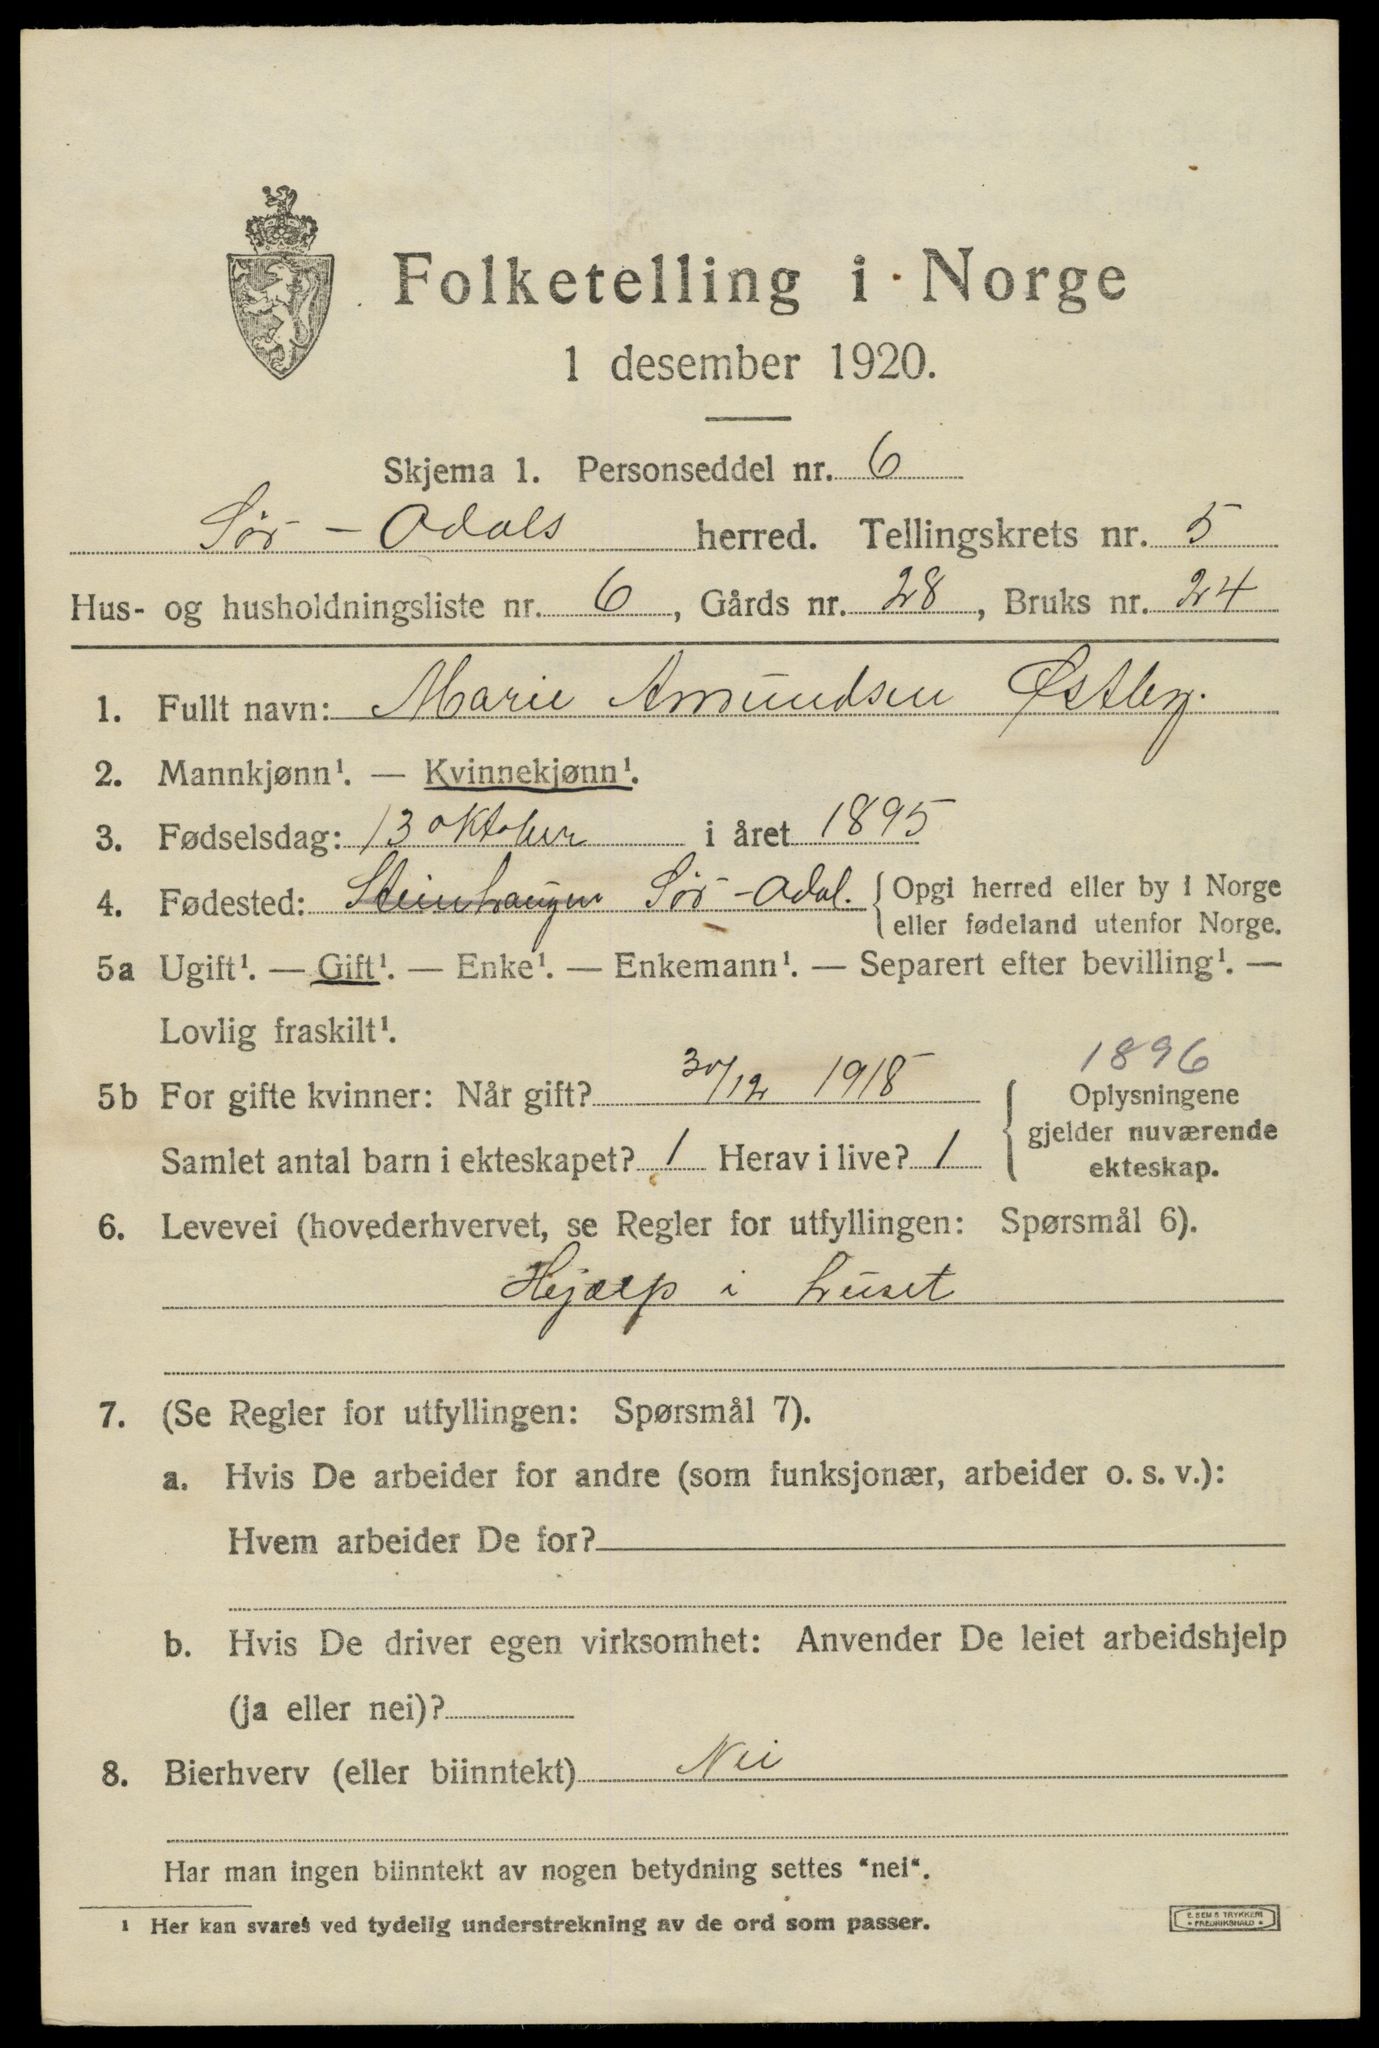 Folketelling i Norge
1 desember 1920.
Skjema 1. Personseddel nr. 6
Sør - Odals herred. Tellingskrets nr. 5
Hus- og husholdningsliste nr. 6, Gårds nr. 28, Bruks nr. 24
1. Fullt navn: Marie Amundsen Østby.
2. Mannkjønn¹. — Kvinnekjønn¹.
3. Fødselsdag: 13 oktober i året 1895
4. Fødested: Steinhaugen Sør-Odal. { Opgi herred eller by i Norge
eller fødeland utenfor Norge.
5a Ugift¹. — Gift¹. — Enke¹. — Enkemann¹. — Separert efter bevilling¹. —
Lovlig fraskilt¹.
1896
5b For gifte kvinner: Når gift? 30/12 1918 { Oplysningene
gjelder nuværende
Samlet antal barn i ekteskapet? 1 Herav i live? 1 ekteskap.
6. Levevei (hovederhvervet, se Regler for utfyllingen: Spørsmål 6).
Hjælp i huset
7. (Se Regler for utfyllingen: Spørsmål 7).
a. Hvis De arbeider for andre (som funksjonær, arbeider o. s. v.):
Hvem arbeider De for?
b. Hvis De driver egen virksomhet: Anvender De leiet arbeidshjelp
(ja eller nei)?
8. Bierhverv (eller biinntekt) Nei
Har man ingen biinntekt av nogen betydning settes "nei".
¹ Her kan svares ved tydelig understrekning av de ord som passer.
E. SEM S TRYKKERI
• FREDRIKSHALD •